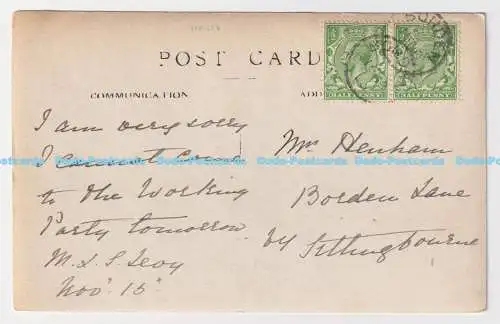 POST CARD
COMMUNICATION
ADD
HALFPENNY HALFPENNY
I am very sorry
I cannot come
to the Working
Party tomorrow.
M. L. S. Levy
Nov: 15
Mrs Denham
Borden Lane
Sittingbourne
Dodo-Postcards Dodo-Postcards Dodo-Postcards Dodo-Postcards